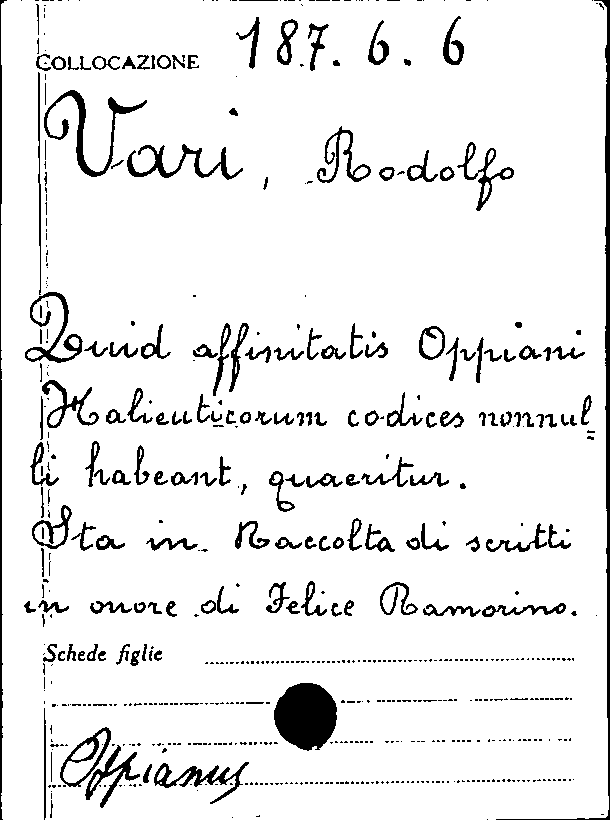 COLLOCAZIONE 187. 6. 6
Vari, Rodolfo
Quid affinitatis Oppiani
Halieuticorum codices nonnul=
li habeant, quaeritur.
Sta in Raccolta di scritti
in onore di Felice Ramorino.
Schede figlie
Oppianus